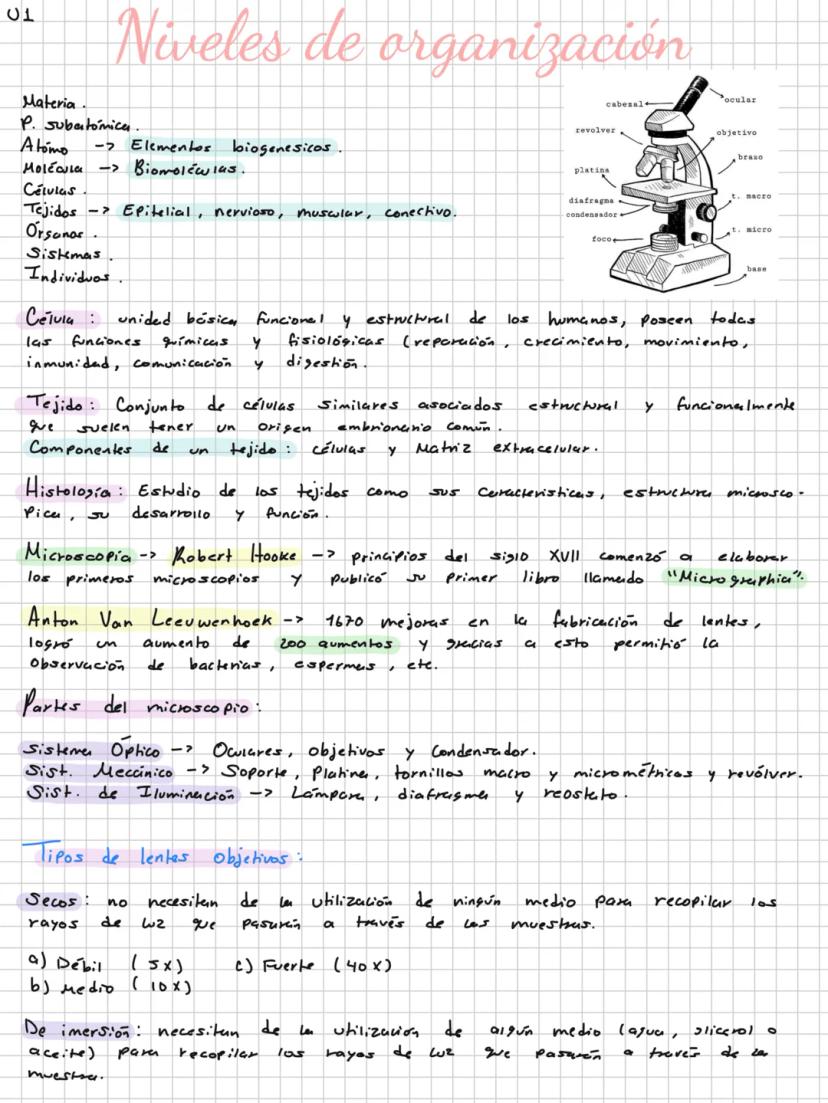 U1
Niveles de organización
Materia.
P. subatómica.
Atómo -> Elementos biogenesicos.
Molécula -> Biomoléculas.
Células.
Tejidos -> Epitelial, nervioso, muscular, conectivo.
Órganos.
Sistemas.
Individuos.
cabezal
ocular
revolver
objetivo
brazo
platina
diafragma
t. macro
condensador
t. micro
foco
base
Célula: unidad básica funcional y estructural de los humanos, poseen todas
las funciones químicas y fisiológicas (reparación, crecimiento, movimiento,
inmunidad, comunicación y digestión.
Tejido: Conjunto de células similares asociados estructural y funcionalmente
que suelen tener un origen embrionario común.
Componentes de un tejido: células y Matriz extracelular.
Histología: Estudio de los tejidos como sus características, estructura microsco-
pica, su desarrollo y función.
Microscopía -> Robert Hooke -> principios del siglo XVII comenzó a elaborar
los primeros microscopios y publicó su primer libro llamado "Micrographia".
Anton Van Leeuwenhoek -> 1670 mejoras en la fabricación de lentes,
logró un aumento de 200 aumentos y gracias a esto permitió la
observación de bacterias, espermas, etc.
Partes del microscopio:
Sistema Óptico -> Oculares, objetivos y condensador.
Sist. Mecánico -> Soporte, Platina, tornillos macro y micrométricos y revólver.
Sist. de Iluminación -> Lámpara, diafragma y reostato.
Tipos de lentes objetivos:
Secos: no necesitan de la utilización de ningún medio para recopilar los
rayos de luz que pasarán a través de las muestras.
a) Débil (5x) c) Fuerte (40x)
b) Medio (10x)
De imersión: necesitan de la utilización de algún medio (agua, glicerol o
aceite) para recopilar los rayos de luz que pasarán a través de la
muestra.